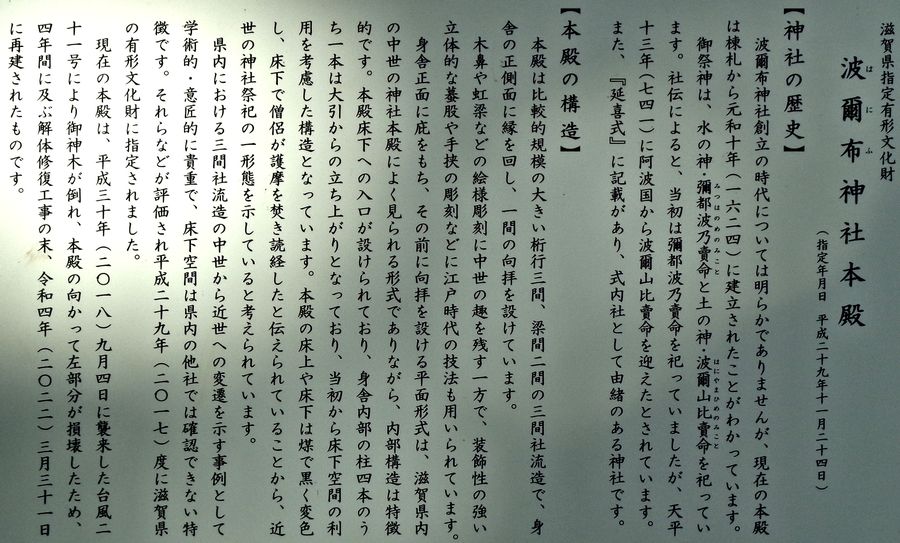 滋賀県指定有形文化財
波爾布神社本殿
はにふ
（指定年月日　平成二十九年十一月二十四日）
【神社の歴史】
　波爾布神社創立の時代については明らかでありませんが、現在の本殿
は棟札から元和十年（一六二四）に建立されたことがわかっています。
　御祭神は、水の神・彌都波乃賣命と土の神・波爾山比賣命を祀ってい
みつはのめのみこと
はにやまひめのみこと
ます。社伝によると、当初は彌都波乃賣命を祀っていましたが、天平
十三年（七四一）に阿波国から波爾山比賣命を迎えたとされています。
また、『延喜式』に記載があり、式内社として由緒のある神社です。
【本殿の構造】
　本殿は比較的規模の大きい桁行三間、梁間二間の三間社流造で、身
舎の正側面に縁を回し、一間の向拝を設けています。
　木鼻や虹梁などの絵様彫刻に中世の趣を残す一方で、装飾性の強い
立体的な蟇股や手挟の彫刻などに江戸時代の技法も用いられています。
　身舎正面に庇をもち、その前に向拝を設ける平面形式は、滋賀県内
の中世の神社本殿によく見られる形式でありながら、内部構造は特徴
的です。本殿床下への入口が設けられており、身舎内部の柱四本のう
ち一本は大引からの立ち上がりとなっており、当初から床下空間の利
用を考慮した構造となっています。本殿の床上や床下は煤で黒く変色
し、床下で僧侶が護摩を焚き読経したと伝えられていることから、近
世の神社祭祀の一形態を示していると考えられています。
　県内における三間社流造の中世から近世への変遷を示す事例として
学術的・意匠的に貴重で、床下空間は県内の他社では確認できない特
徴です。それらなどが評価され平成二十九年（二〇一七）度に滋賀県
の有形文化財に指定されました。
　現在の本殿は、平成三十年（二〇一八）九月四日に襲来した台風二
十一号により御神木が倒れ、本殿の向かって左部分が損壊したため、
四年間に及ぶ解体修復工事の末、令和四年（二〇二二）三月三十一日
に再建されたものです。